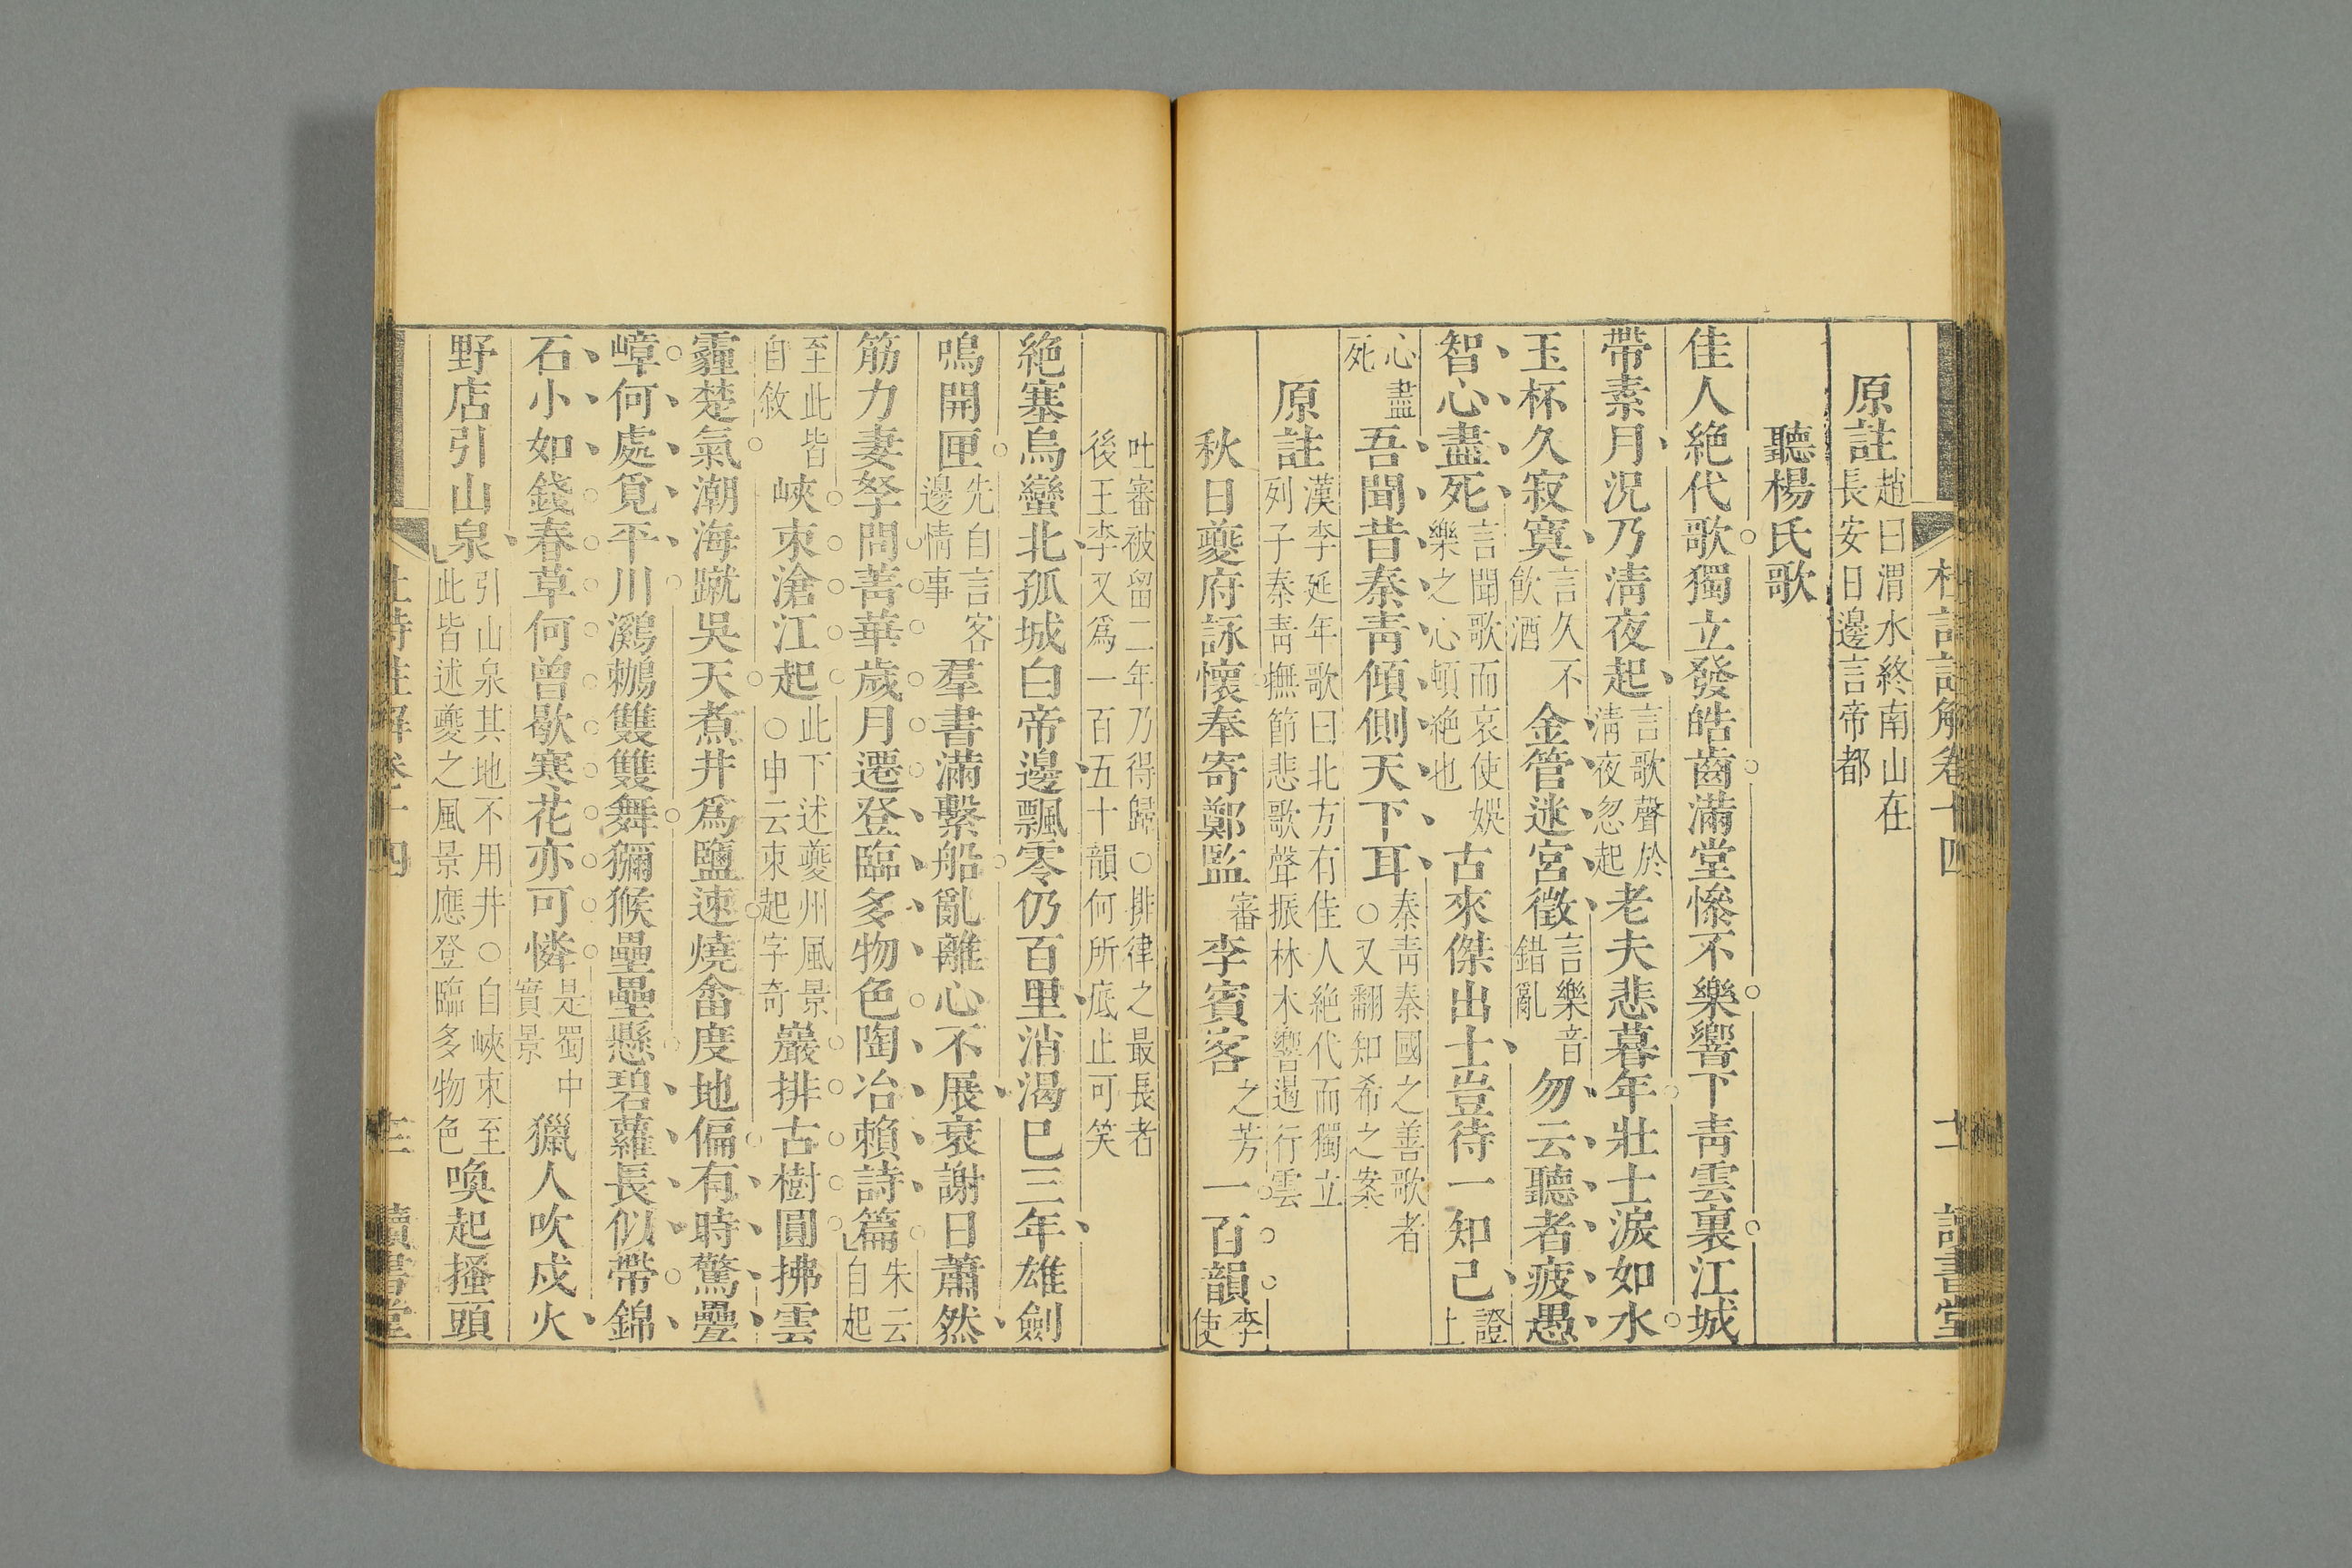 杜詩註解卷十四 十二 讀書堂
原註趙曰渭水終南山在
長安日邊言帝都
聽楊氏歌
佳人絕代歌獨立發皓齒滿堂慘不樂響下靑雲裏江城
帶素月況乃淸夜起言歌聲於淸夜忽起老夫悲暮年壯士淚如水
玉杯久寂寞言久不飮酒金管迷宮徵言樂音錯亂勿云聽者疲愚
智心盡死言聞歌而哀使娛樂之心頓絶也古來傑出士豈待一知己證上
心盡死吾聞昔秦靑傾側天下耳秦靑秦國之善歌者○又翻知希之案
原註漢李延年歌曰北方有佳人絶代而獨立
列子秦靑撫節悲歌聲振林木響遏行雲
秋日夔府詠懷奉寄鄭監審李賓客之芳一百韻李使
吐審被留二年乃得歸○排律之最長者
後王李又爲一百五十韻何所底止可笑
絶塞烏蠻北孤城白帝邊飄零仍百里消渴已三年雄劍
鳴開匣先自言客邊情事羣書滿繫船亂離心不展衰謝日蕭然
筋力妻孥問菁華歲月遷登臨多物色陶冶賴詩篇朱云自起
至此皆自敘峽束滄江起此下述夔州風景○申云束起字奇巖排古樹圓拂雲
霾楚氣潮海蹴吳天煮井爲鹽速燒畬度地偏有時驚疊
嶂何處覓平川鸂鶒雙雙舞獼猴壘壘懸碧蘿長似帶錦
石小如錢春草何曾歇寒花亦可憐是蜀中實景獵人吹戍火
野店引山泉引山泉其地不用井○自峽束至此皆述夔之風景應登臨多物色喚起搔頭
杜詩註解卷十四 十三 讀書堂